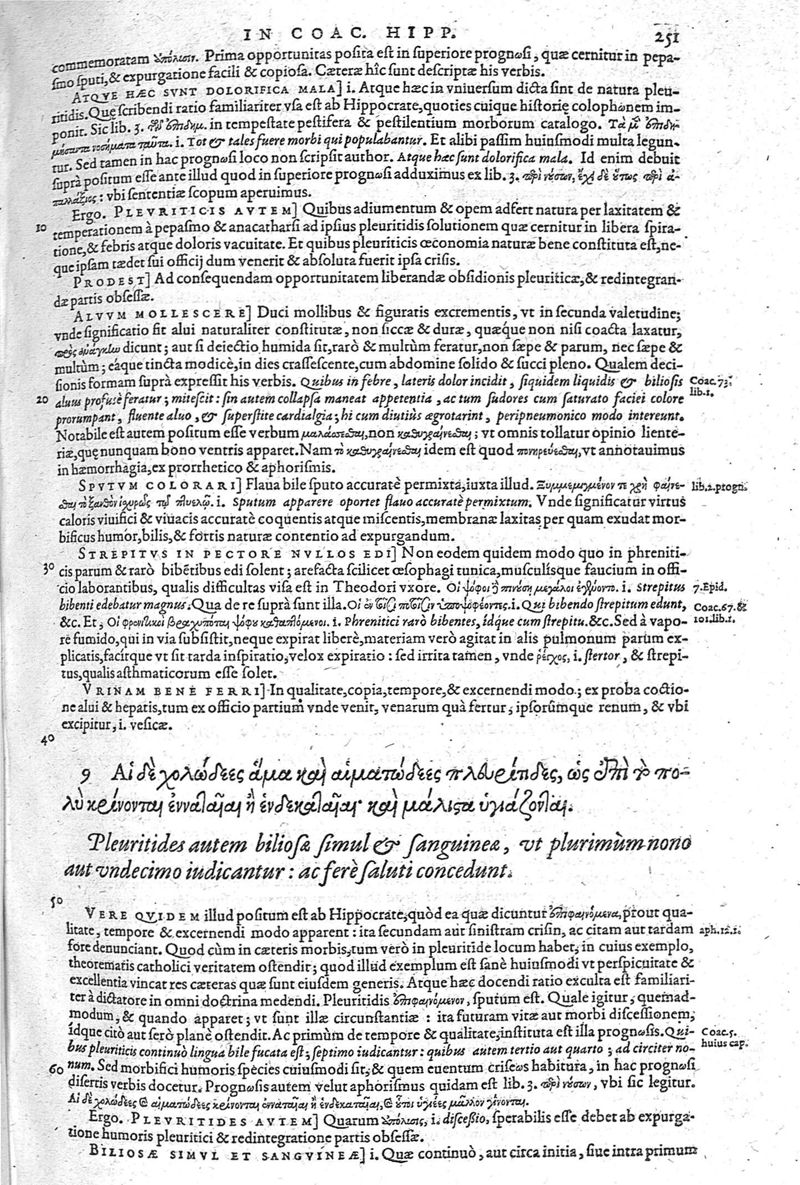 IN COAC. HIPP. 251
commemoratam ὑπόλυσιν. Prima opportunitas posita est in superiore prognωsi, quæ cernitur in pepa-
smo sputi, & expurgatione facili & copiosa. Cæteræ hîc sunt descriptæ his verbis.
ATQVE HÆC SVNT DOLORIFICA MALA] i. Atque hæc in vniuersum dicta sint de natura pleu-
ritidis. Que scribendi ratio familiariter vsa est ab Hippocrate, quoties cuique historię colophωnem im-
ponit. Sic lib. 3. in tempestate pestifera & pestilentium morborum catalogo.
i. Tot & tales fuere morbi qui populabantur. Et alibi passim huiusmodi multa legun-
tur. Sed tamen in hac prognωsi loco non scripsit author. Atque hæc sunt dolorifica mala. Id enim debuit
suprà positum esse ante illud quod in superiore prognωsi adduximus ex lib. 3. περὶ νούσων,
: vbi sententiæ scopum aperuimus.
Ergo. PLEVRITICIS AVTEM] Quibus adiumentum & opem adfert natura per laxitatem &
10 temperationem à pepasmo & anacatharsi ad ipsius pleuritidis solutionem quæ cernitur in libera spira-
tione, & febris atque doloris vacuitate. Et quibus pleuriticis œconomia naturæ bene constituta est, ne-
que ipsam tædet sui officij dum venerit & absoluta fuerit ipsa crisis.
PRODEST] Ad consequendam opportunitatem liberandæ obsidionis pleuriticæ, & redintegran-
dæ partis obsessæ.
ALVVM MOLLESCERE] Duci mollibus & figuratis excrementis, vt in secunda valetudine;
vnde significatio fit alui naturaliter constitutæ, non siccæ & duræ, quæque non nisi coacta laxatur,
πρὸς ἀνάγκην dicunt; aut si deiectio humida sit, rarò & multùm feratur, non sæpe & parum, nec sæpe &
multùm; eáque tincta modicè, in dies crassescente, cum abdomine solido & succi pleno. Qualem deci-
sionis formam suprà expressit his verbis. Quibus in febre, lateris dolor incidit, siquidem liquidis & biliosis Coac. 73.
20 aluus profusè feratur; mitescit: sin autem collapsa maneat appetentia, ac tum sudores cum saturato faciei colore lib. 1.
prorumpant, fluente aluo, & superstite cardialgia; hi cum diutiùs ægrotarint, peripneumonico modo intereunt.
Notabile est autem positum esse verbum μαλάσσεσθαι, non καθυγραίνεσθαι; vt omnis tollatur opinio liente-
riæ, quę nunquam bono ventris apparet. Nam τὸ καθυγραίνεσθαι idem est quod πονηρεύεσθαι, vt annotauimus
in hæmorrhagia, ex prorrhetico & aphorismis.
SPVTVM COLORARI] Flaua bile sputo accuratè permixta, iuxta illud. Ξυμμεμιγμένον τε χρὴ φαίνε- lib. 2. progn.
σθαι τὸ ξανθὸν ἰσχυρῶς τῷ πτυέλῳ. i. Sputum apparere oportet flauo accuratè permixtum. Vnde significatur virtus
caloris viuifici & viuacis accuratè coquentis atque miscentis, membranæ laxitas per quam exudat mor-
bificus humor, bilis, & fortis naturæ contentio ad expurgandum.
STREPITVS IN PECTORE NVLLOS EDI] Non eodem quidem modo quo in phreniti-
30 cis parum & rarò bibentibus edi solent; arefacta scilicet œsophagi tunica, musculisque faucium in offi-
cio laborantibus, qualis difficultas visa est in Theodori vxore. Οἱ ψόφοι μεγάλοι i. Strepitus 7. Epid.
bibenti edebatur magnus. Qua de re suprà sunt illa. i. Qui bibendo strepitum edunt, Coac. 67. &
&c. Et, Οἱ φρενιτικοὶ βραχυπόται i. Phrenitici rarò bibentes, idque cum strepitu. &c. Sed à vapo- 101. lib. 1.
re fumido, qui in via subsistit, neque expirat liberè, materiam verò agitat in alis pulmonum parum ex-
plicatis, facitque vt sit tarda inspiratio, velox expiratio: sed irrita tamen, vnde ῥέγχος, i. stertor, & strepi-
tus, qualis asthmaticorum esse solet.
VRINAM BENE FERRI] In qualitate, copia, tempore, & excernendi modo; ex proba coctio-
ne alui & hepatis, tum ex officio partium vnde venit, venarum quà fertur; ipsorúmque renum, & vbi
excipitur, i. vesicæ.
40
9 Αἱ δὲ χολώδεες ἅμα καὶ αἱματώδεες πλευρίτιδες, ὡς ἐπὶ τὸ πο-
λὺ κρίνονται ἐνναταῖαι ἢ ἑνδεκαταῖαι· καὶ μάλιστα ὑγιάζονται.
Pleuritides autem biliosæ simul & sanguineæ, vt plurimùm nono
aut vndecimo iudicantur: ac ferè saluti concedunt.
50
VERE QVIDEM illud positum est ab Hippocrate, quòd ea quæ dicuntur ἐπιφαινόμενα, prout qua-
litate, tempore & excernendi modo apparent: ita secundam aut sinistram crisin, ac citam aut tardam aph. 12. 1.
fore denunciant. Quod cùm in cæteris morbis, tum verò in pleuritide locum habet; in cuius exemplo,
theorematis catholici veritatem ostendit; quod illud exemplum est sanè huiusmodi vt perspicuitate &
excellentia vincat res cæteras quæ sunt eiusdem generis. Atque hæc docendi ratio exculta est familiari-
ter à dictatore in omni doctrina medendi. Pleuritidis ἐπιφαινόμενον, sputum est. Quale igitur, quemad-
modum, & quando apparet; vt sunt illæ circunstantiæ: ita futuram vitæ aut morbi discessionem;
ídque citò aut serò planè ostendit. Ac primùm de tempore & qualitate, instituta est illa prognωsis. Qui- Coac. 5.
bus pleuriticis continuò lingua bile fucata est; septimo iudicantur: quibus autem tertio aut quarto; ad circiter no- huius cap.
60 num. Sed morbifici humoris species cuiusmodi sit, & quem euentum criseωs habitura, in hac prognωsi
disertis verbis docetur. Prognωsis autem velut aphorismus quidam est lib. 3. περὶ νούσων, vbi sic legitur.
Αἱ δὲ χολώδεες καὶ αἱματώδεες κρίνονται ἐνναταῖαι ἢ ἑνδεκαταῖαι, καὶ οὗτοι ὑγιέες μᾶλλον γίνονται.
Ergo. PLEVRITIDES AVTEM] Quarum ὑπόλυσις, i. discessio, sperabilis esse debet ab expurga-
tione humoris pleuritici & redintegratione partis obsessæ.
BILIOSÆ SIMVL ET SANGVINEÆ] i. Quæ continuò, aut circa initia, siue intra primum